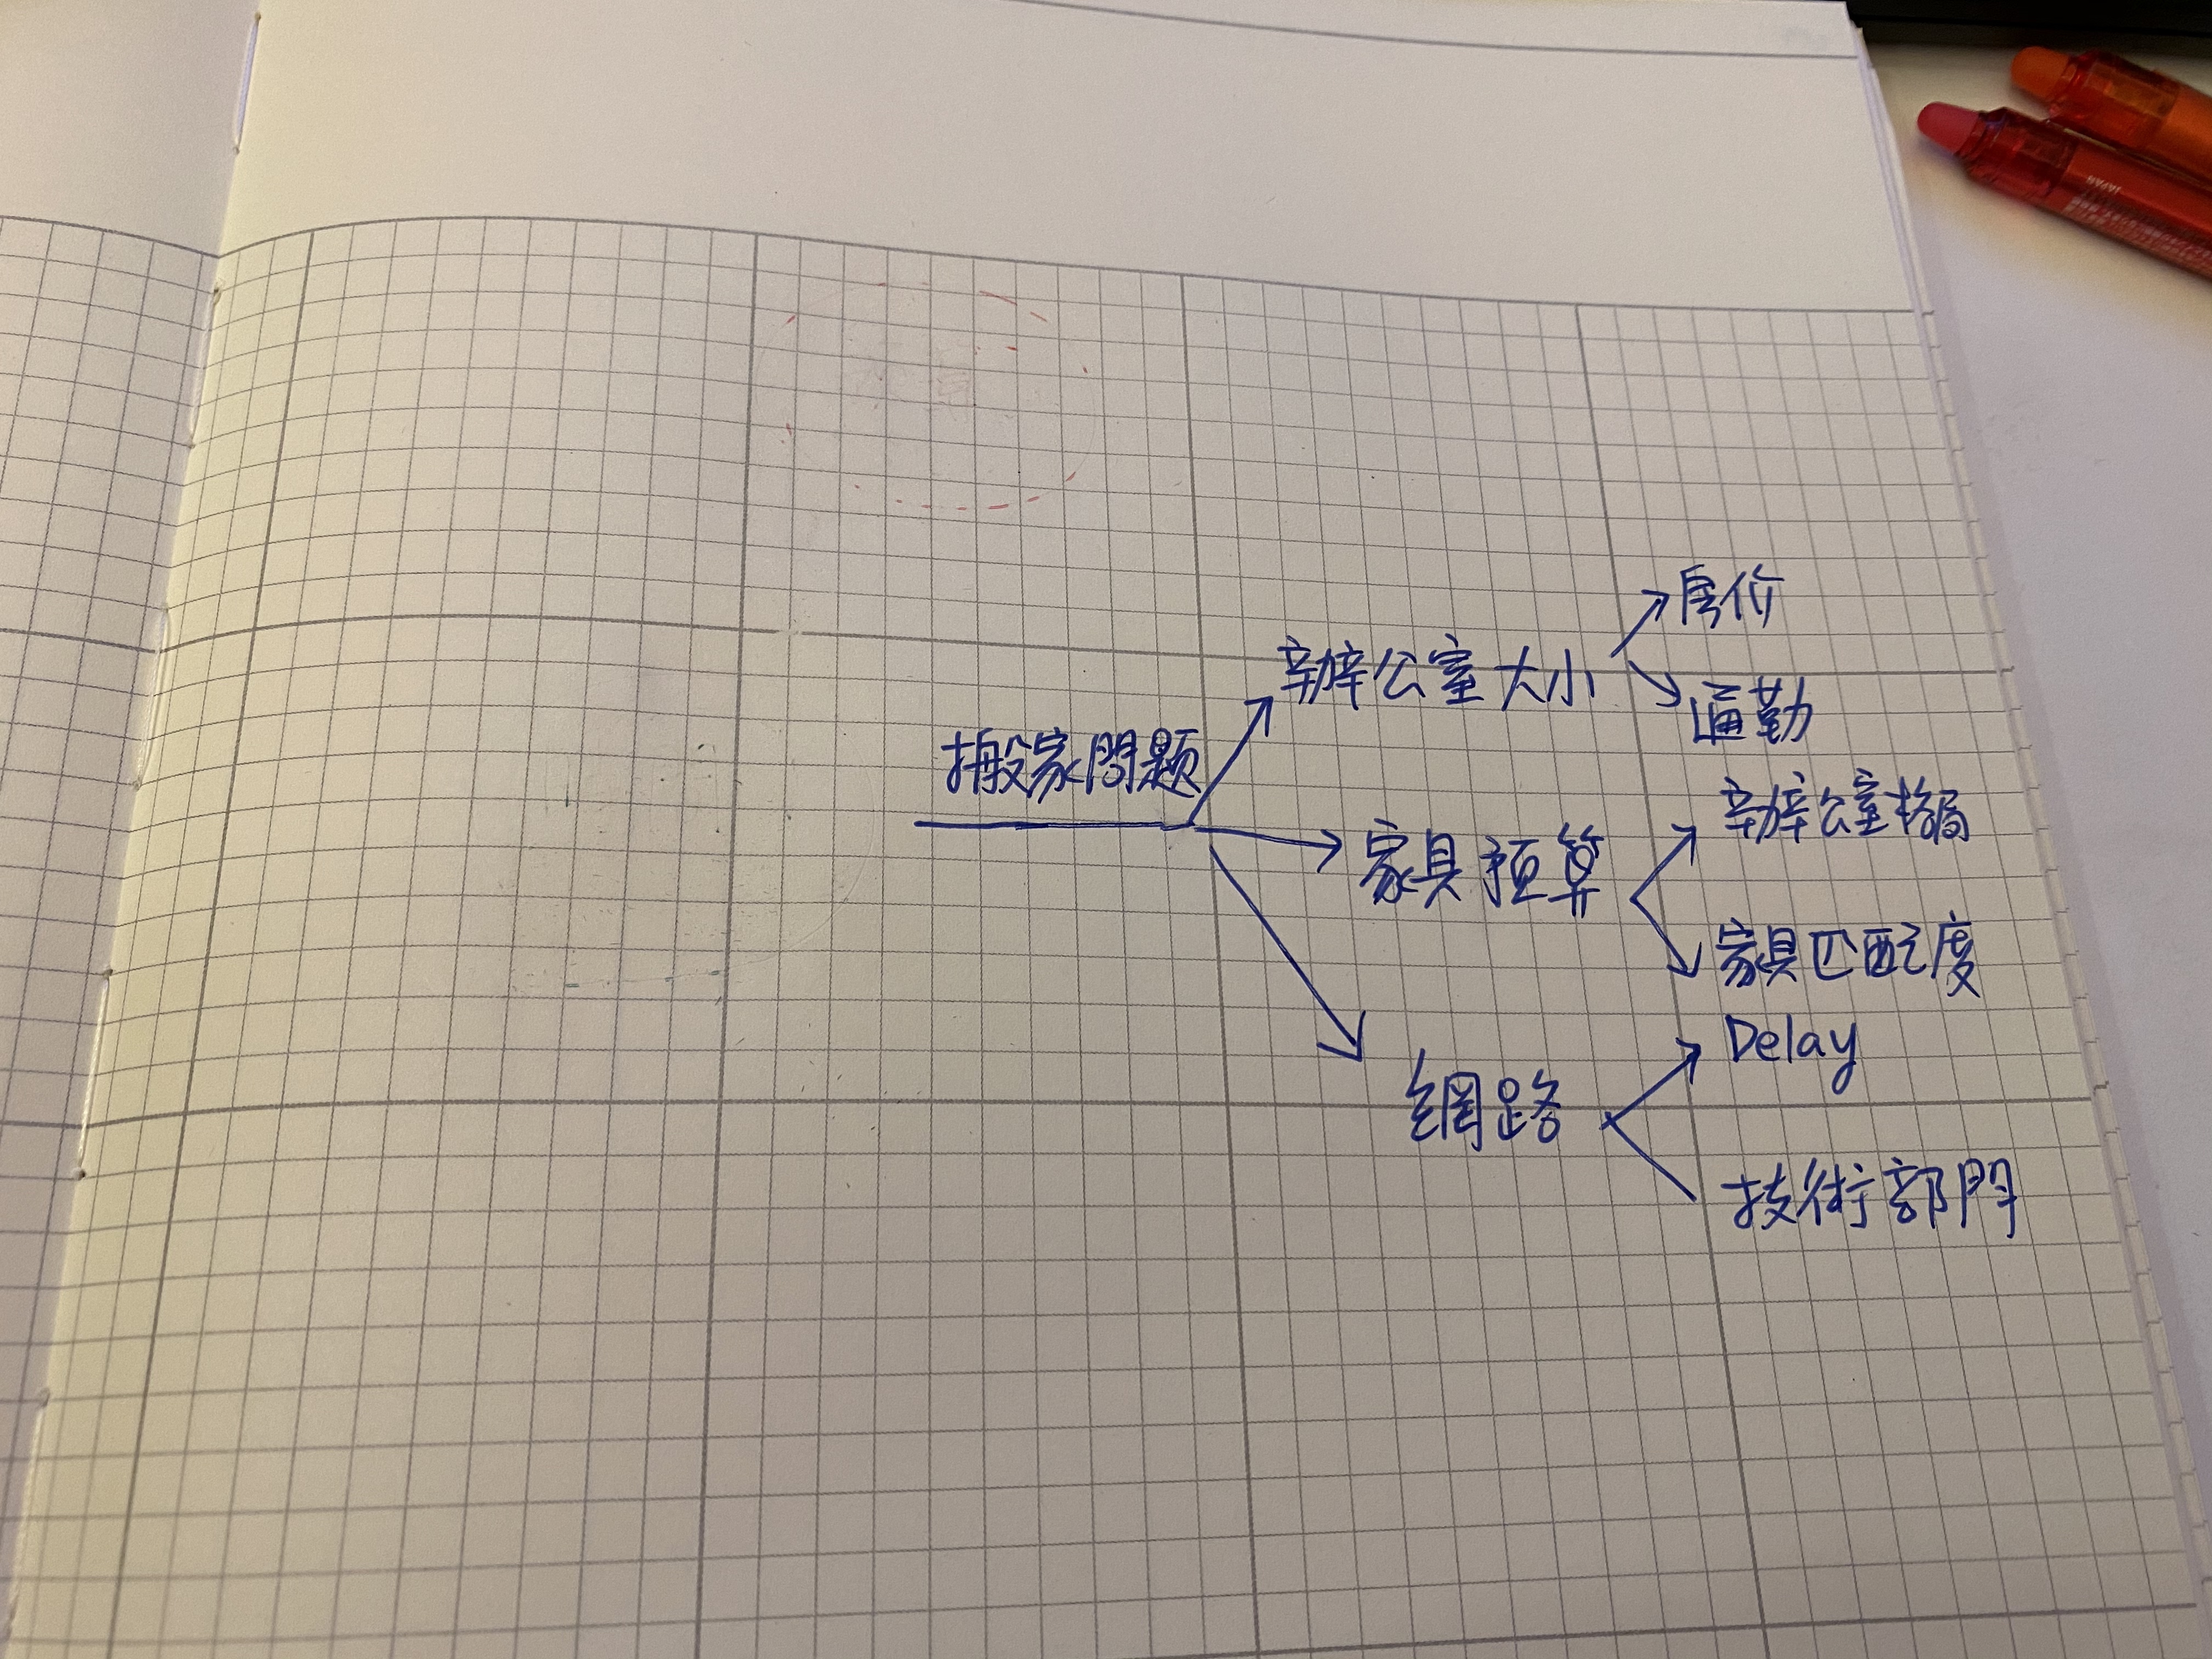 搬家問题
辦公室大小
房价
通勤
家具预算
辦公室格局
家具匹配度
網路
Delay
技術部門
JAPAN